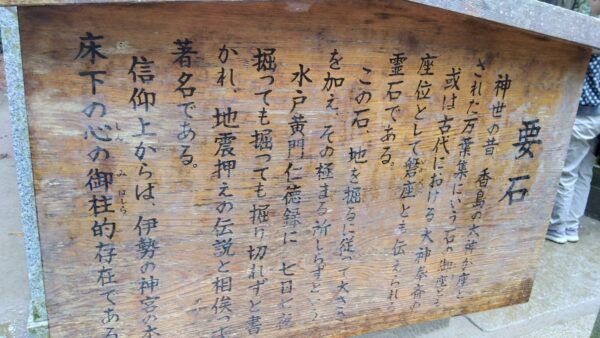 要石
神世の昔 香島の大神が座と
された万葉集にいう石の御座とも
或は古代における大神奉斎の
座位として磐座とも伝えられる
霊石である。
この石、地を掘るに従って大きさ
を加え、その極まる所しらずという
水戸黄門仁徳録に 七日七夜
掘っても掘っても掘り切れずと書
かれ、地震押えの伝説と相俟って
著名である。
信仰上からは、伊勢の神宮の本
床下の心の御柱的存在である
しん みはしら